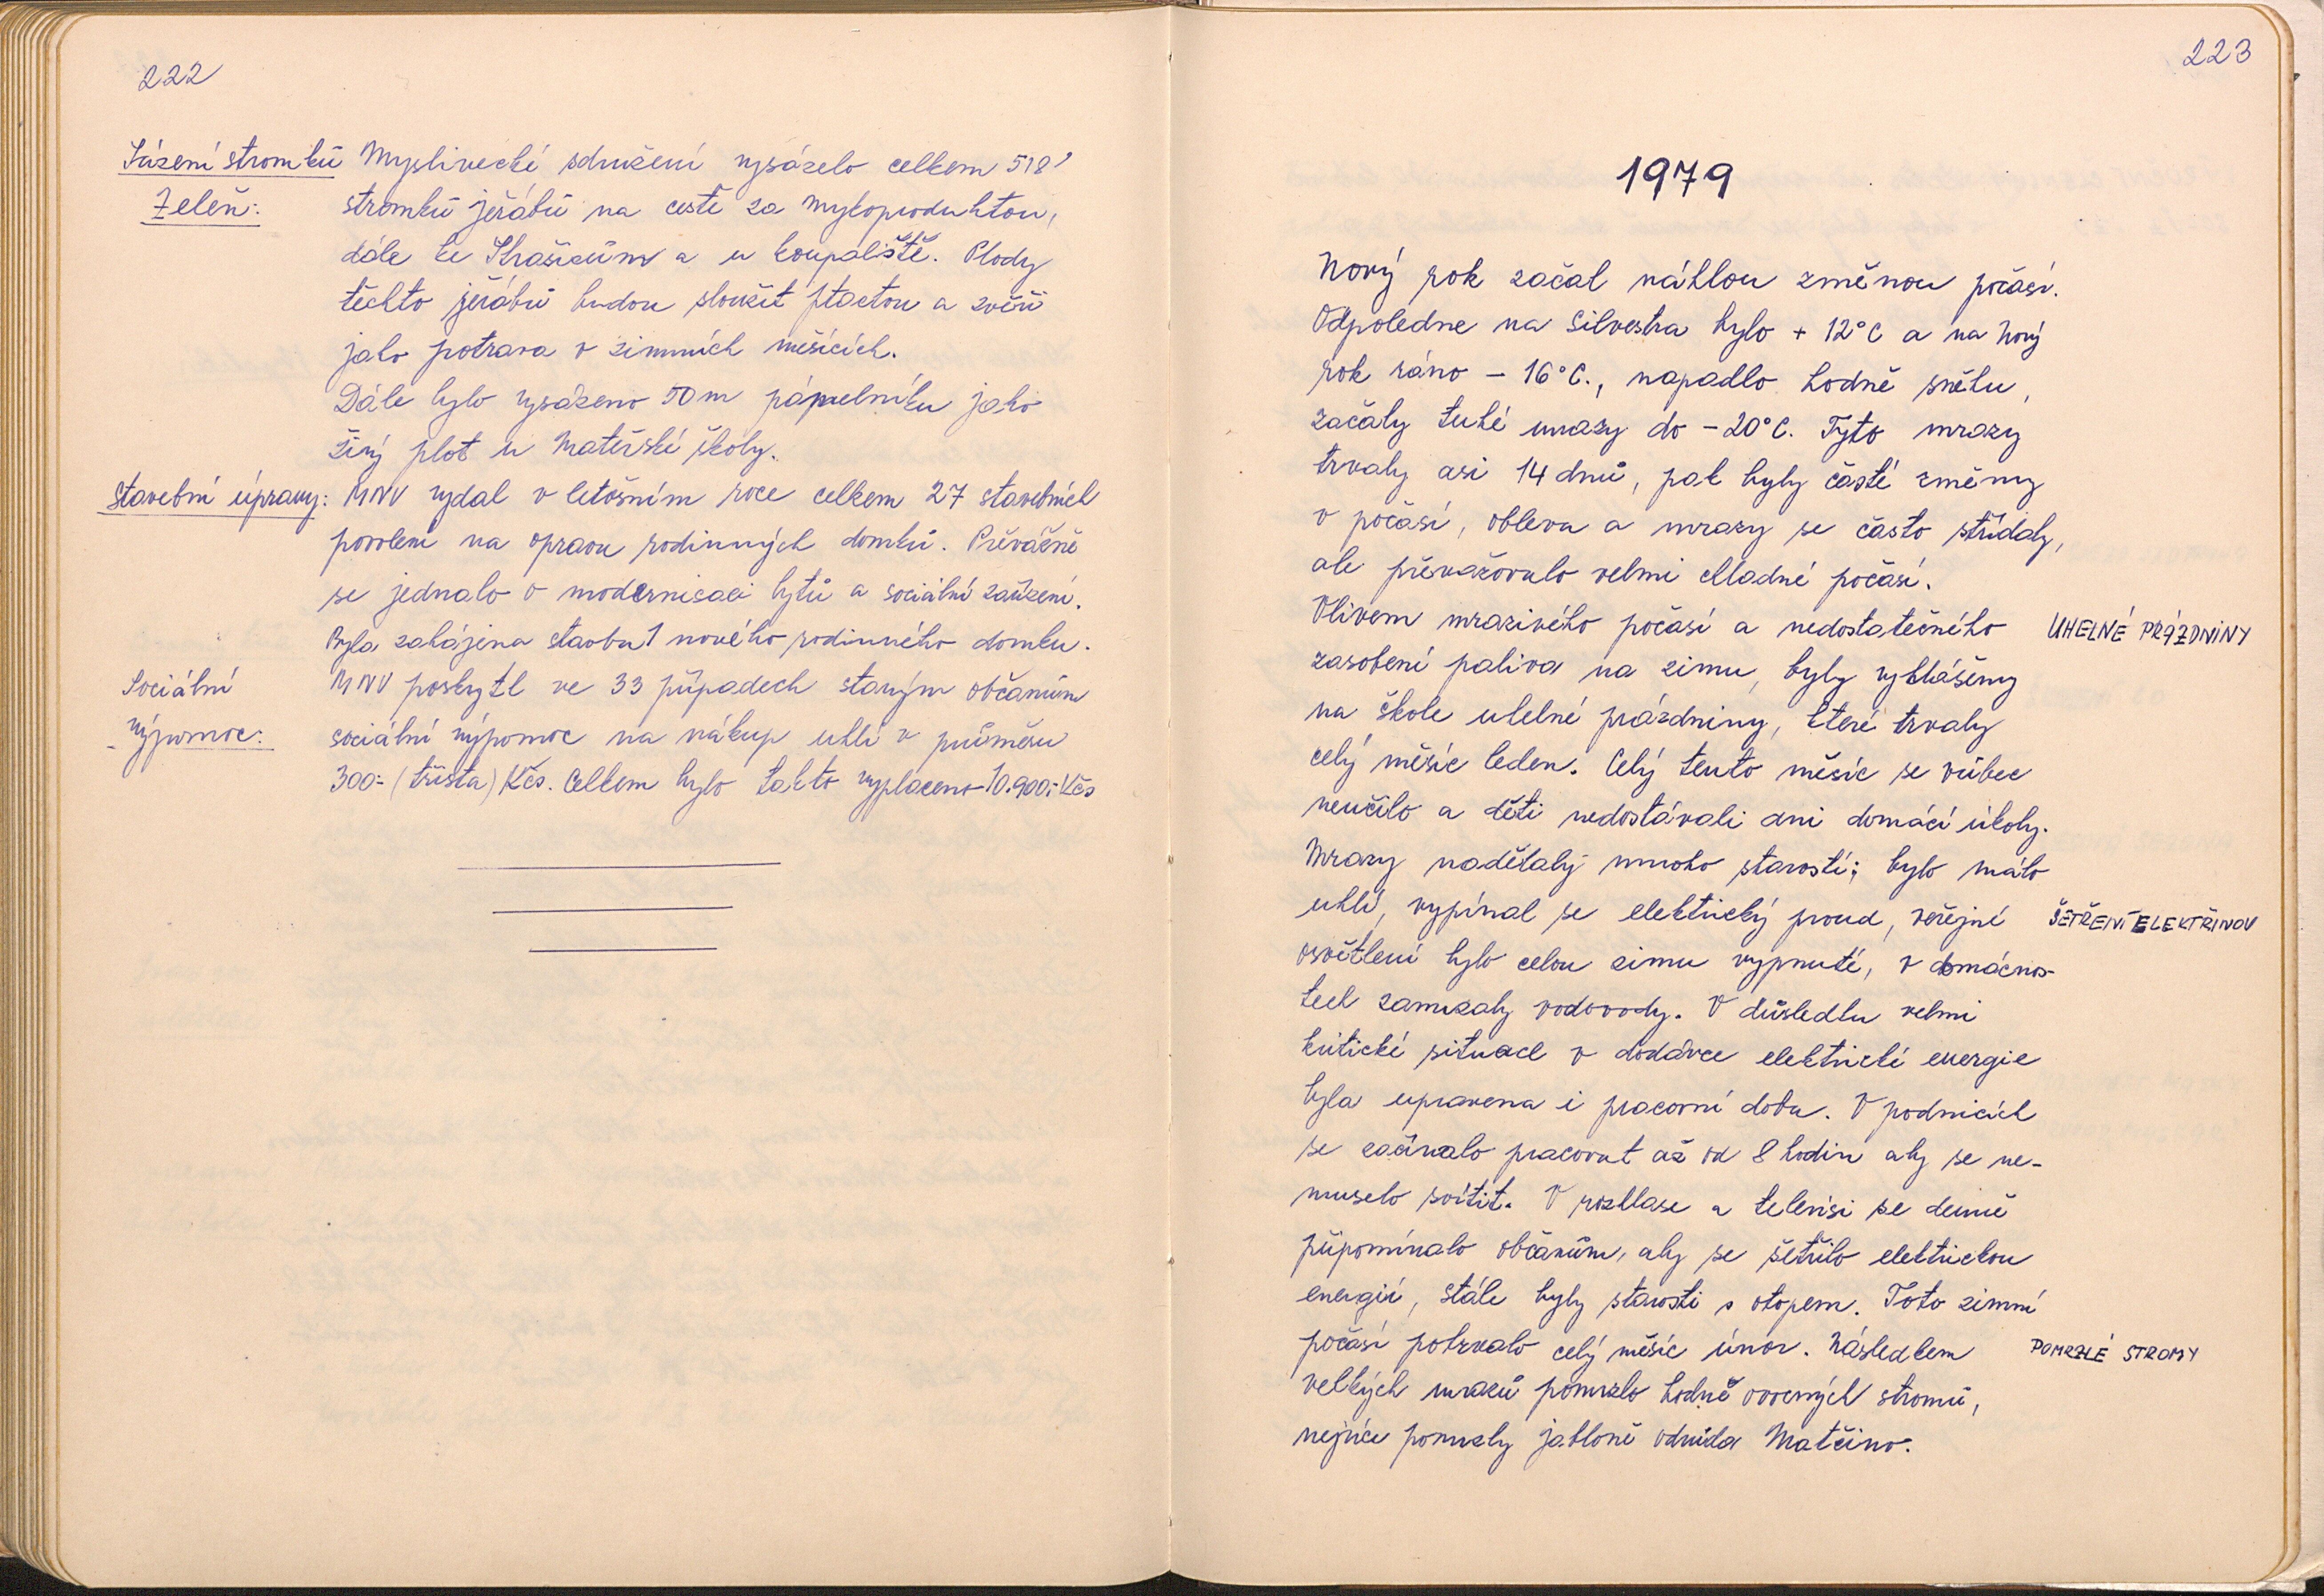 222
Sázení stromků
Zeleň:
Myslivecké sdružení vysázelo celkem 518
stromků jeřábů na cestě za Mykoproduktou,
dále ke Skrašicům a u koupaliště. Plody
těchto jeřábů budou sloužit ptactvu a zvěři
jako potrava v zimních měsících.
Dále bylo vysázeno 50 m pámelníku jako
živý plot u Mateřské školy.
Stavební úpravy:
MNV vydal v letošním roce celkem 27 stavebních
povolení na opravu rodinných domků. Převážně
se jednalo o modernisaci bytů a sociální zařízení.
Byla zahájena stavba 1 nového rodinného domku.
Sociální
výpomoc:
MNV poskytl ve 33 případech starým občanům
sociální výpomoc na nákup uhlí v průměru
300.- (třista) Kčs. Celkem bylo takto vyplaceno 10.900.- Kčs
223
1979
Nový rok začal náhlou změnou počasí.
Odpoledne na Silvestra bylo + 12°C a na Nový
rok ráno - 16°C., napadlo hodně sněhu,
začaly tuhé mrazy do -20°C. Tyto mrazy
trvaly asi 14 dnů, pak byly časté změny
v počasí, obleva a mrazy se často střídaly,
ale převažovalo velmi chladné počasí.
Vlivem mrazivého počasí a nedostatečného
UHELNÉ PRÁZDNINY
zasobení paliva na zimu, byly vyhlášeny
na škole uhelné prázdniny, které trvaly
celý měsíc leden. Celý tento měsíc se vůbec
neučilo a děti nedostávali ani domácí úkoly.
Mrazy nadělaly mnoho starostí; bylo málo
uhlí, vypínal se elektrický proud, veřejné
ŠETŘENÍ ELEKTŘINOU
osvětlení bylo celou zimu vypnuté, v domácnos-
tech zamrzaly vodovody. V důsledku velmi
kritické situace v dodávce elektrické energie
byla upravena i pracovní doba. V podnicích
se začínalo pracovat až od 8 hodin aby se ne-
muselo svítit. V rozhlase a televisi se denně
připomínalo občanům, aby se šetřilo elektrickou
energií, stále byly starosti s otopem. Toto zimní
počasí potrvalo celý měsíc únor. Následkem
POMRZLÉ STROMY
velkých mrazů pomrzlo hodně ovocných stromů,
nejvíce pomrzly jabloně odrůda Matčino.